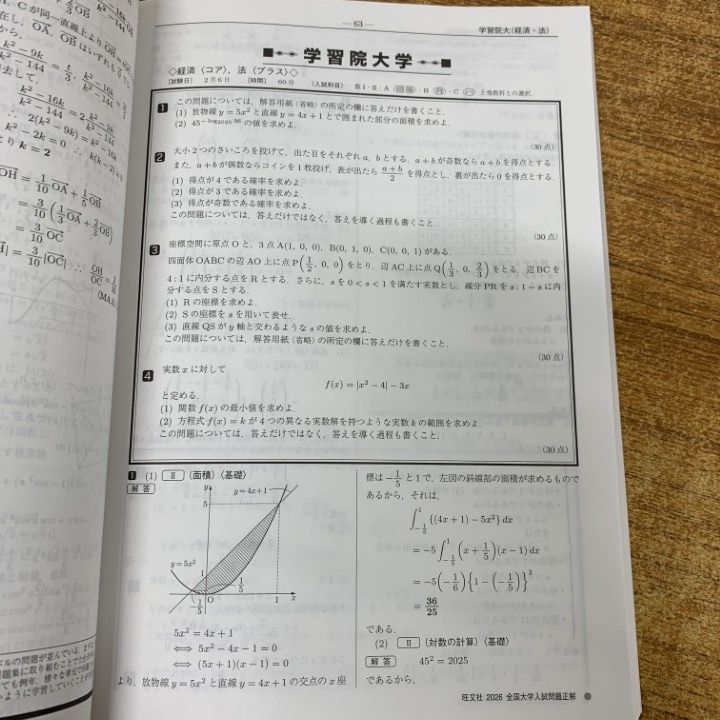 — 63 —
学習院大(経済・法)
学習院大学
◇経済(コア),法(プラス)◇
[試験日] 2月6日 [時間] 60分 [入試科目] 数I・II・A・B・C と他教科との選択
1 この問題については,解答用紙(省略)の所定の欄に答えだけを書くこと.
(1) 放物線 y=5x² と直線 y=4x+1 とで囲まれた部分の面積を求めよ.
(2) 45^{-log₂₀₂₅36} の値を求めよ. (30点)
2 大小2つのさいころを投げて,出た目をそれぞれ a, b とする.a+b が奇数なら a+b を得点とする.
また,a+b が偶数ならコインを1枚投げ,表が出たら (a+b)/2 を得点とし,裏が出たら0を得点とする.
(1) 得点が4である確率を求めよ.
(2) 得点が3である確率を求めよ.
(3) 得点が奇数である確率を求めよ.
この問題については,答えだけではなく,答えを導く過程も書くこと. (30点)
3 座標空間に原点Oと,3点A(1, 0, 0), B(0, 1, 0), C(0, 0, 1) がある.
四面体OABCの辺AO上に点P(1/2, 0, 0)をとり,辺AC上に点Q(1/3, 0, 2/3)をとる.辺BCを
4:1に内分する点をRとする.さらに,s を 0<s<1 を満たす実数とし,線分PRを s:1−s に内
分する点をSとする.
(1) Rの座標を求めよ.
(2) Sの座標を s を用いて表せ.
(3) 直線QSが y 軸と交わるような s の値を求めよ.
この問題については,解答用紙(省略)の所定の欄に答えだけを書くこと.
(30点)
4 実数 x に対して
f(x)=|x²−4|−3x
と定める.
(1) 関数 f(x) の最小値を求めよ.
(2) 方程式 f(x)=k が4つの異なる実数解を持つような実数 k の範囲を求めよ.
この問題については,答えだけではなく,答えを導く過程も書くこと.
(30点)
1 (1) II (面積)〈基礎〉
解答
y
y=4x+1
5
y=5x²
1
−1/5
O
1/5
1
x
5x²=4x+1
⟺ 5x²−4x−1=0
⟺ (5x+1)(x−1)=0
より,放物線 y=5x² と直線 y=4x+1 の交点の x 座
標は −1/5 と1で,左図の斜線部の面積が求めるもので
あるから,それは,
∫_{−1/5}^{1} {(4x+1)−5x²} dx
=−5∫_{−1/5}^{1} (x+1/5)(x−1) dx
=−5(−1/6){1−(−1/5)}³
=36/25
である.
(2) II (対数の計算)〈基礎〉
解答 45²=2025
であるから,
旺文社 2026 全国大学入試問題正解